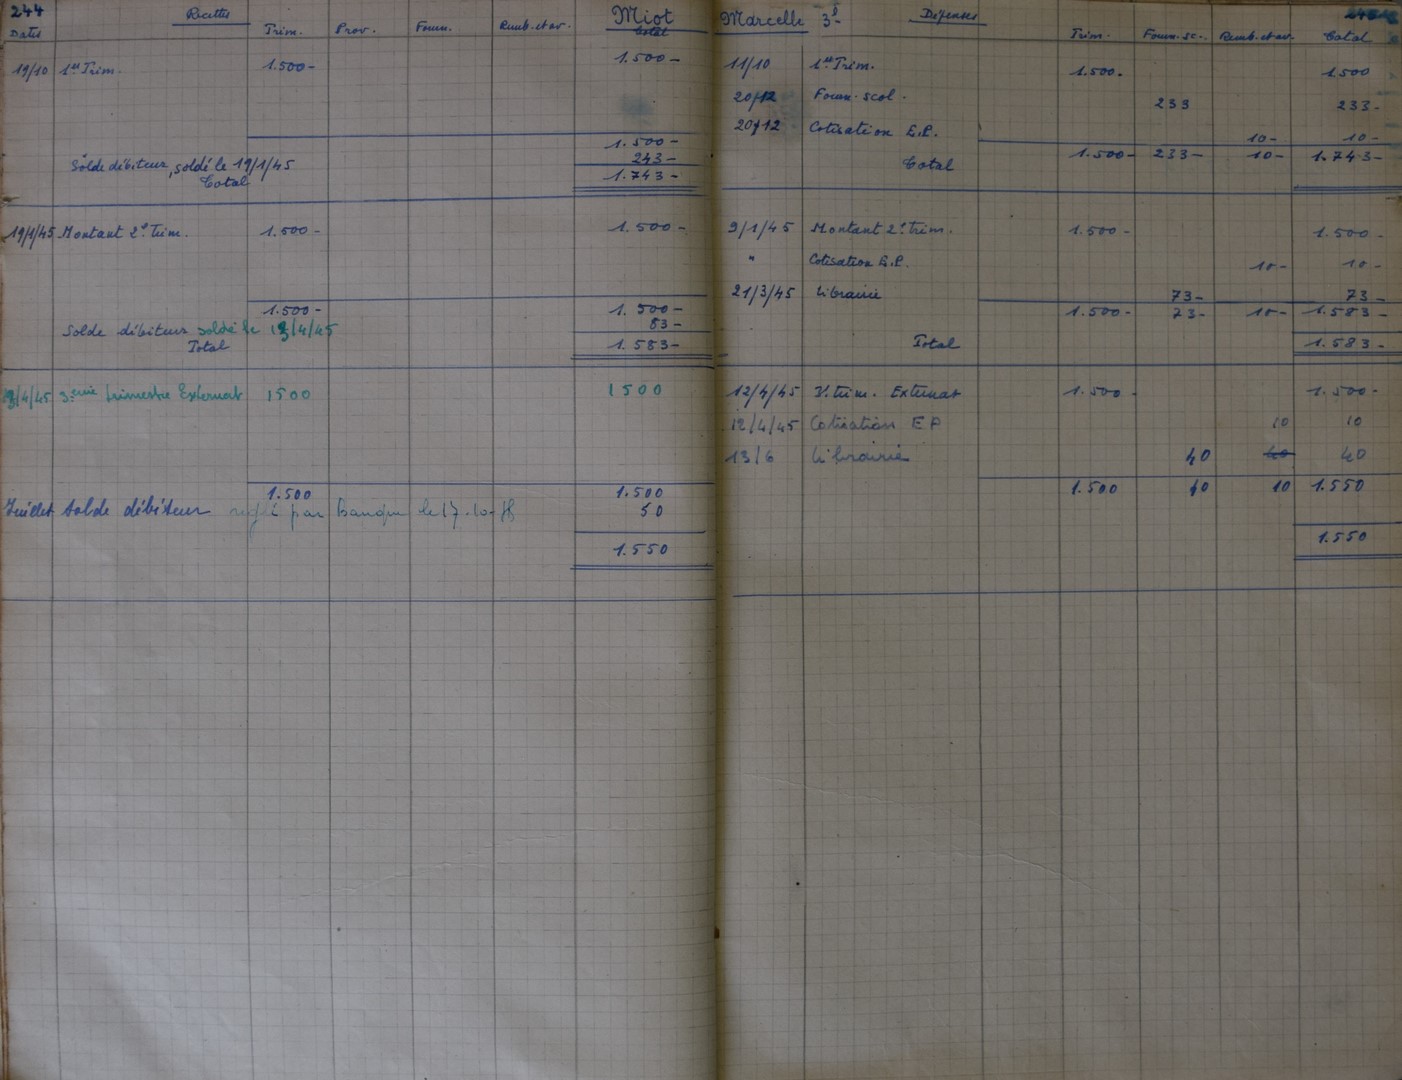 244 Recettes Miot
Dates Trim. Prov. Fourn. Remb. et av. Total
19/10 1er Trim. 1.500- 1.500-
1.500-
Solde débiteur, soldé le 19/1/45 243-
Total 1.743-
19/1/45 Montant 2e Trim. 1.500- 1.500-
1.500- 1.500-
Solde débiteur soldé le 13/4/45 83-
Total 1.583-
13/4/45 3eme trimestre Externat 1500 1500
1.500 1.500
Juillet Solde débiteur réglé par Banque le 17-10-45 50
1.550
Marcelle 3e Dépenses
Trim. Fourn. sc. Remb. et av. Total
11/10 1er Trim. 1.500. 1.500
20/12 Fourn. scol. 233 233-
20/12 Cotisation E.P. 10- 10-
Total 1.500- 233- 10- 1.743-
9/1/45 Montant 2e trim. 1.500- 1.500-
" Cotisation E.P. 10- 10-
21/3/45 Librairie 73- 73-
1.500- 73- 10- 1.583-
Total 1.583-
12/4/45 3e trim. Externat 1.500- 1.500-
12/4/45 Cotisation EP 10 10
13/6 Librairie 40 40 40
1.500 40 10 1.550
1.550